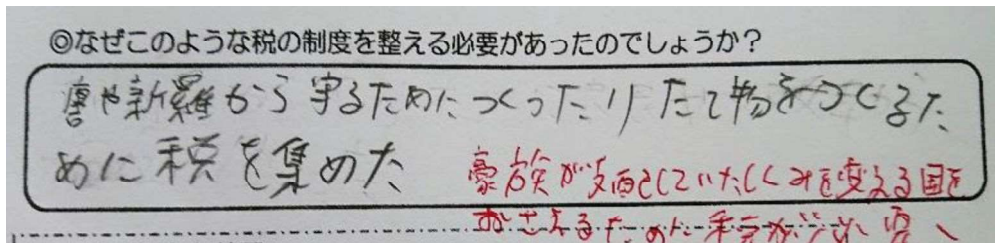 ◎なぜこのような税の制度を整える必要があったのでしょうか？
唐や新羅から守るためにつくったりたて物をつくるた
めに税を集めた
豪族が支配していたしくみを変える国を
おさえるために税が必要